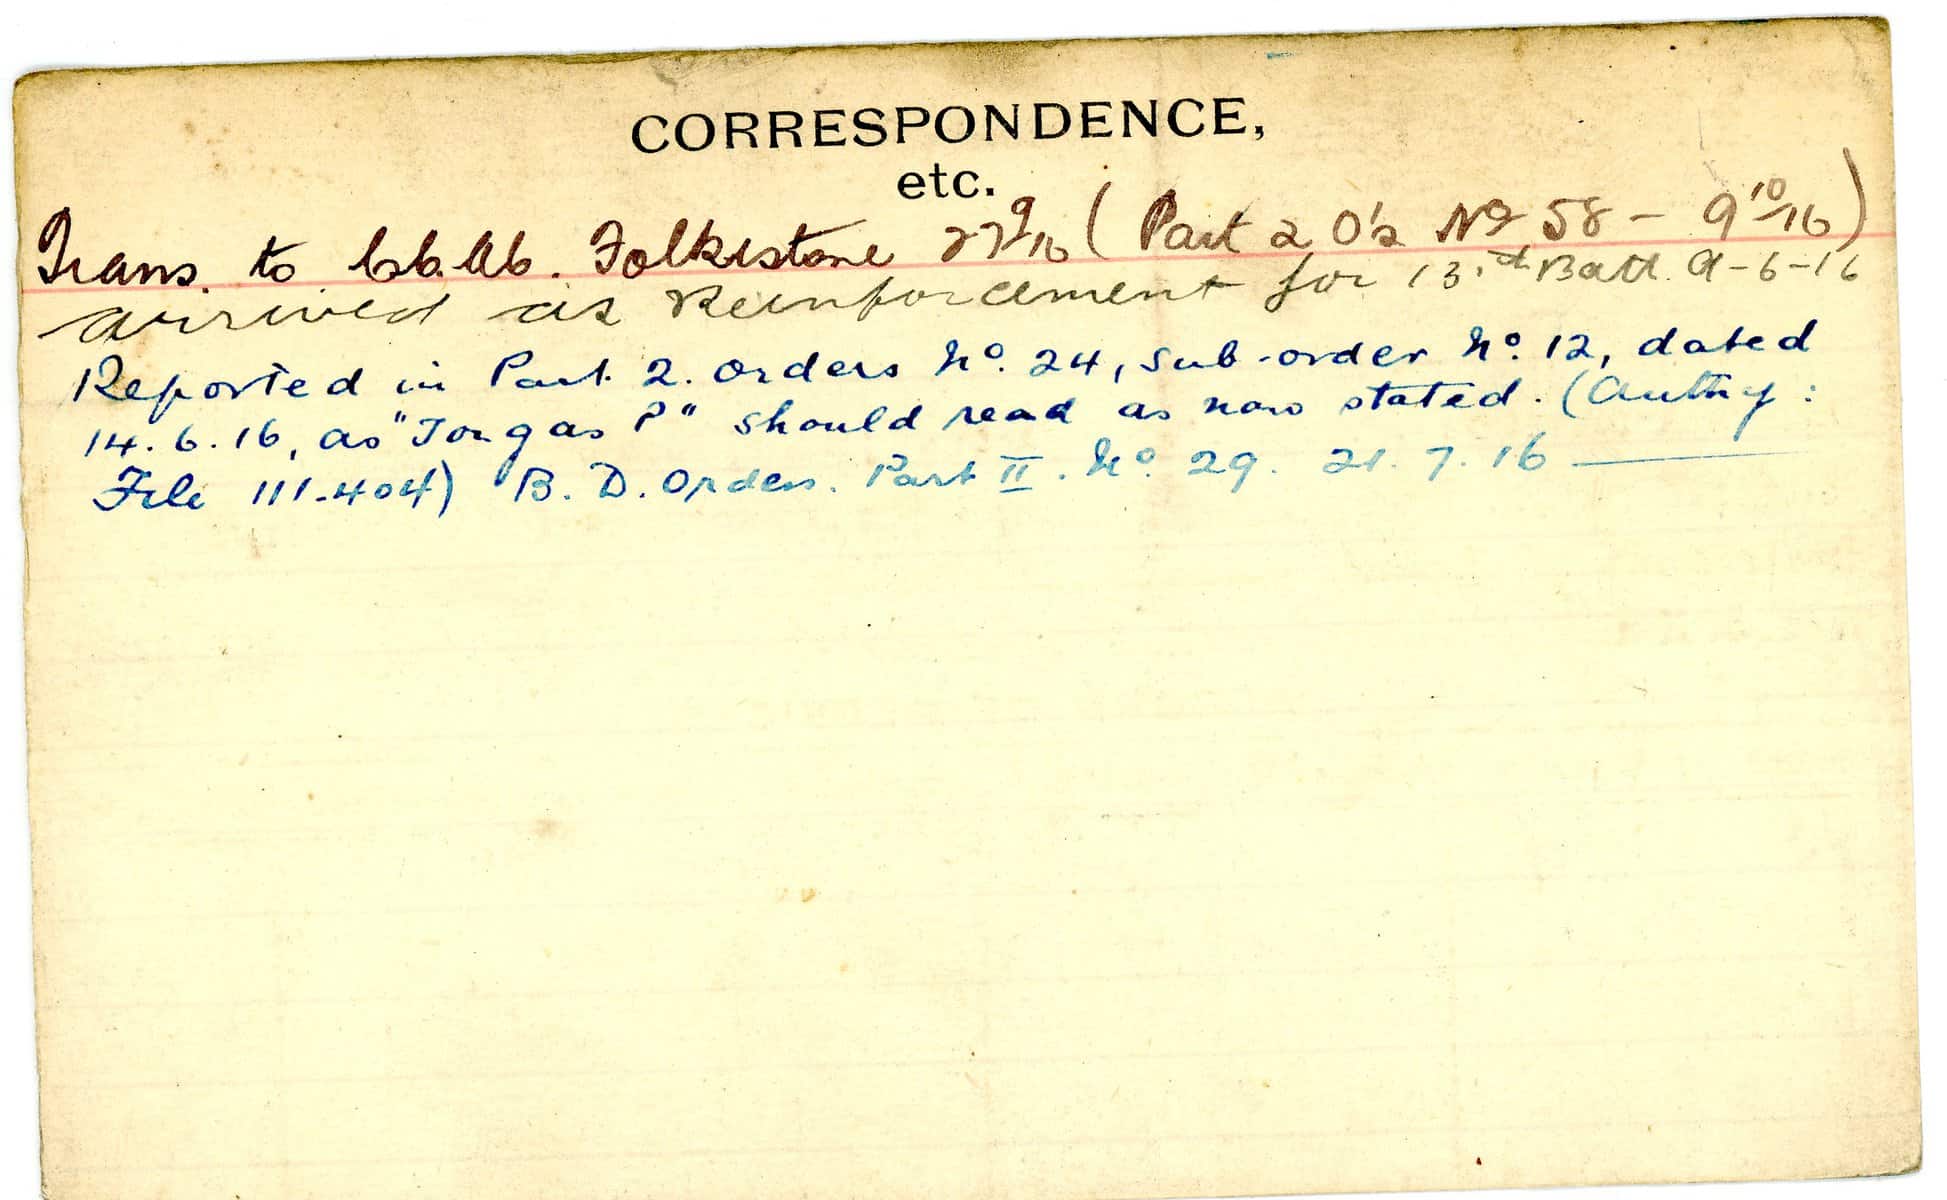 CORRESPONDENCE,
etc.
Trans. to C.C.A.C. Folkistone 27 9/16 ( Part 2 O's No 58 - 9 10/16 )
arrived as Reinforcement for 13th Batt. 9-6-16
Reported in Part. 2. Orders No. 24, Sub-order No. 12, dated
14. 6. 16, as "Torgas P" should read as now stated. (Authy:
File 111-404) B. D. Orders. Part II. No. 29. 21. 7. 16